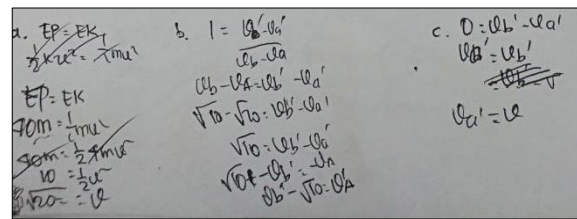 a. EP = EK
½ku² = ½mu²
EP = EK
10m = ½mu²
10 = ½u²
√20 = v
b. 1 = vb' - va'
vb - va
vb - vA = vb' - va'
√10 - √10 = vb' - va'
√10 = vb' - va'
√10 - vb' = -vA
vb' - √10 = vA
c. 0 = vb' - va'
va' = vb'
va' = v